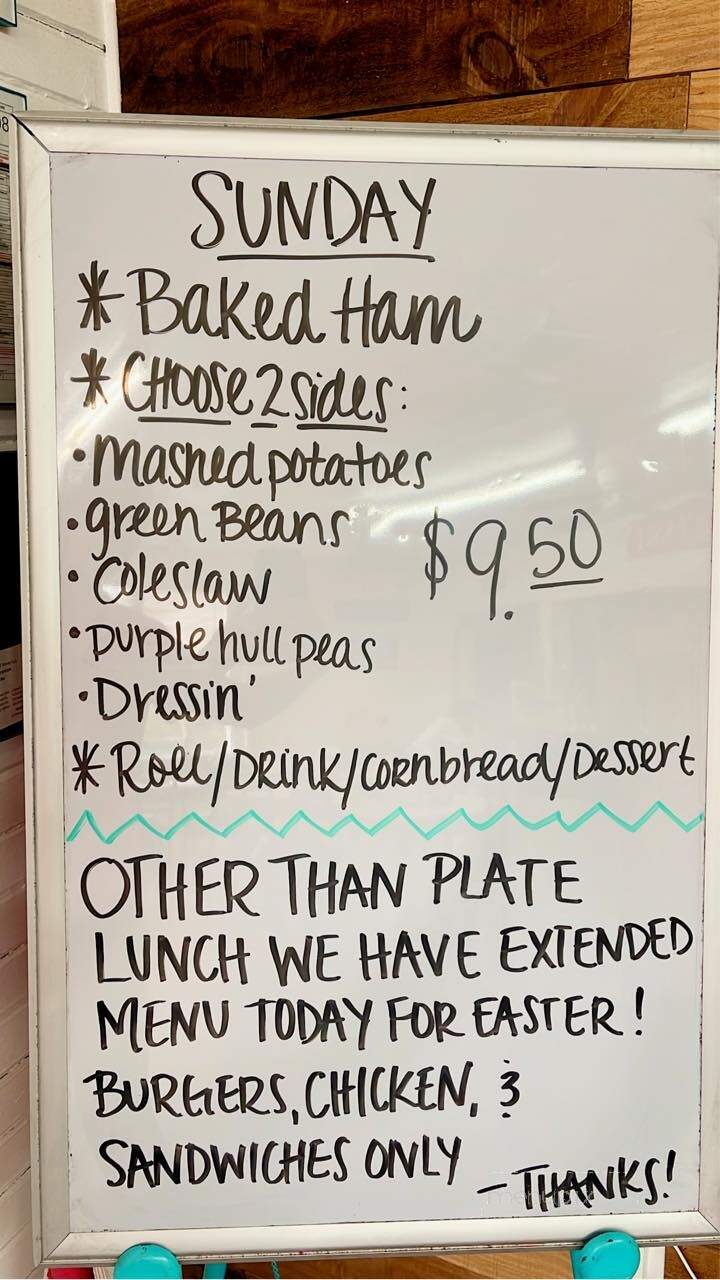 SUNDAY
* Baked Ham
* CHOOSE 2 sides:
• mashed potatoes
• green Beans
$9.50
• Coleslaw
• purple hull peas
• Dressin'
* Roll/DRink/cornbread/Dessert
OTHER THAN PLATE
LUNCH WE HAVE EXTENDED
MENU TODAY FOR EASTER!
BURGERS, CHICKEN, &
SANDWICHES ONLY
- THANKS!